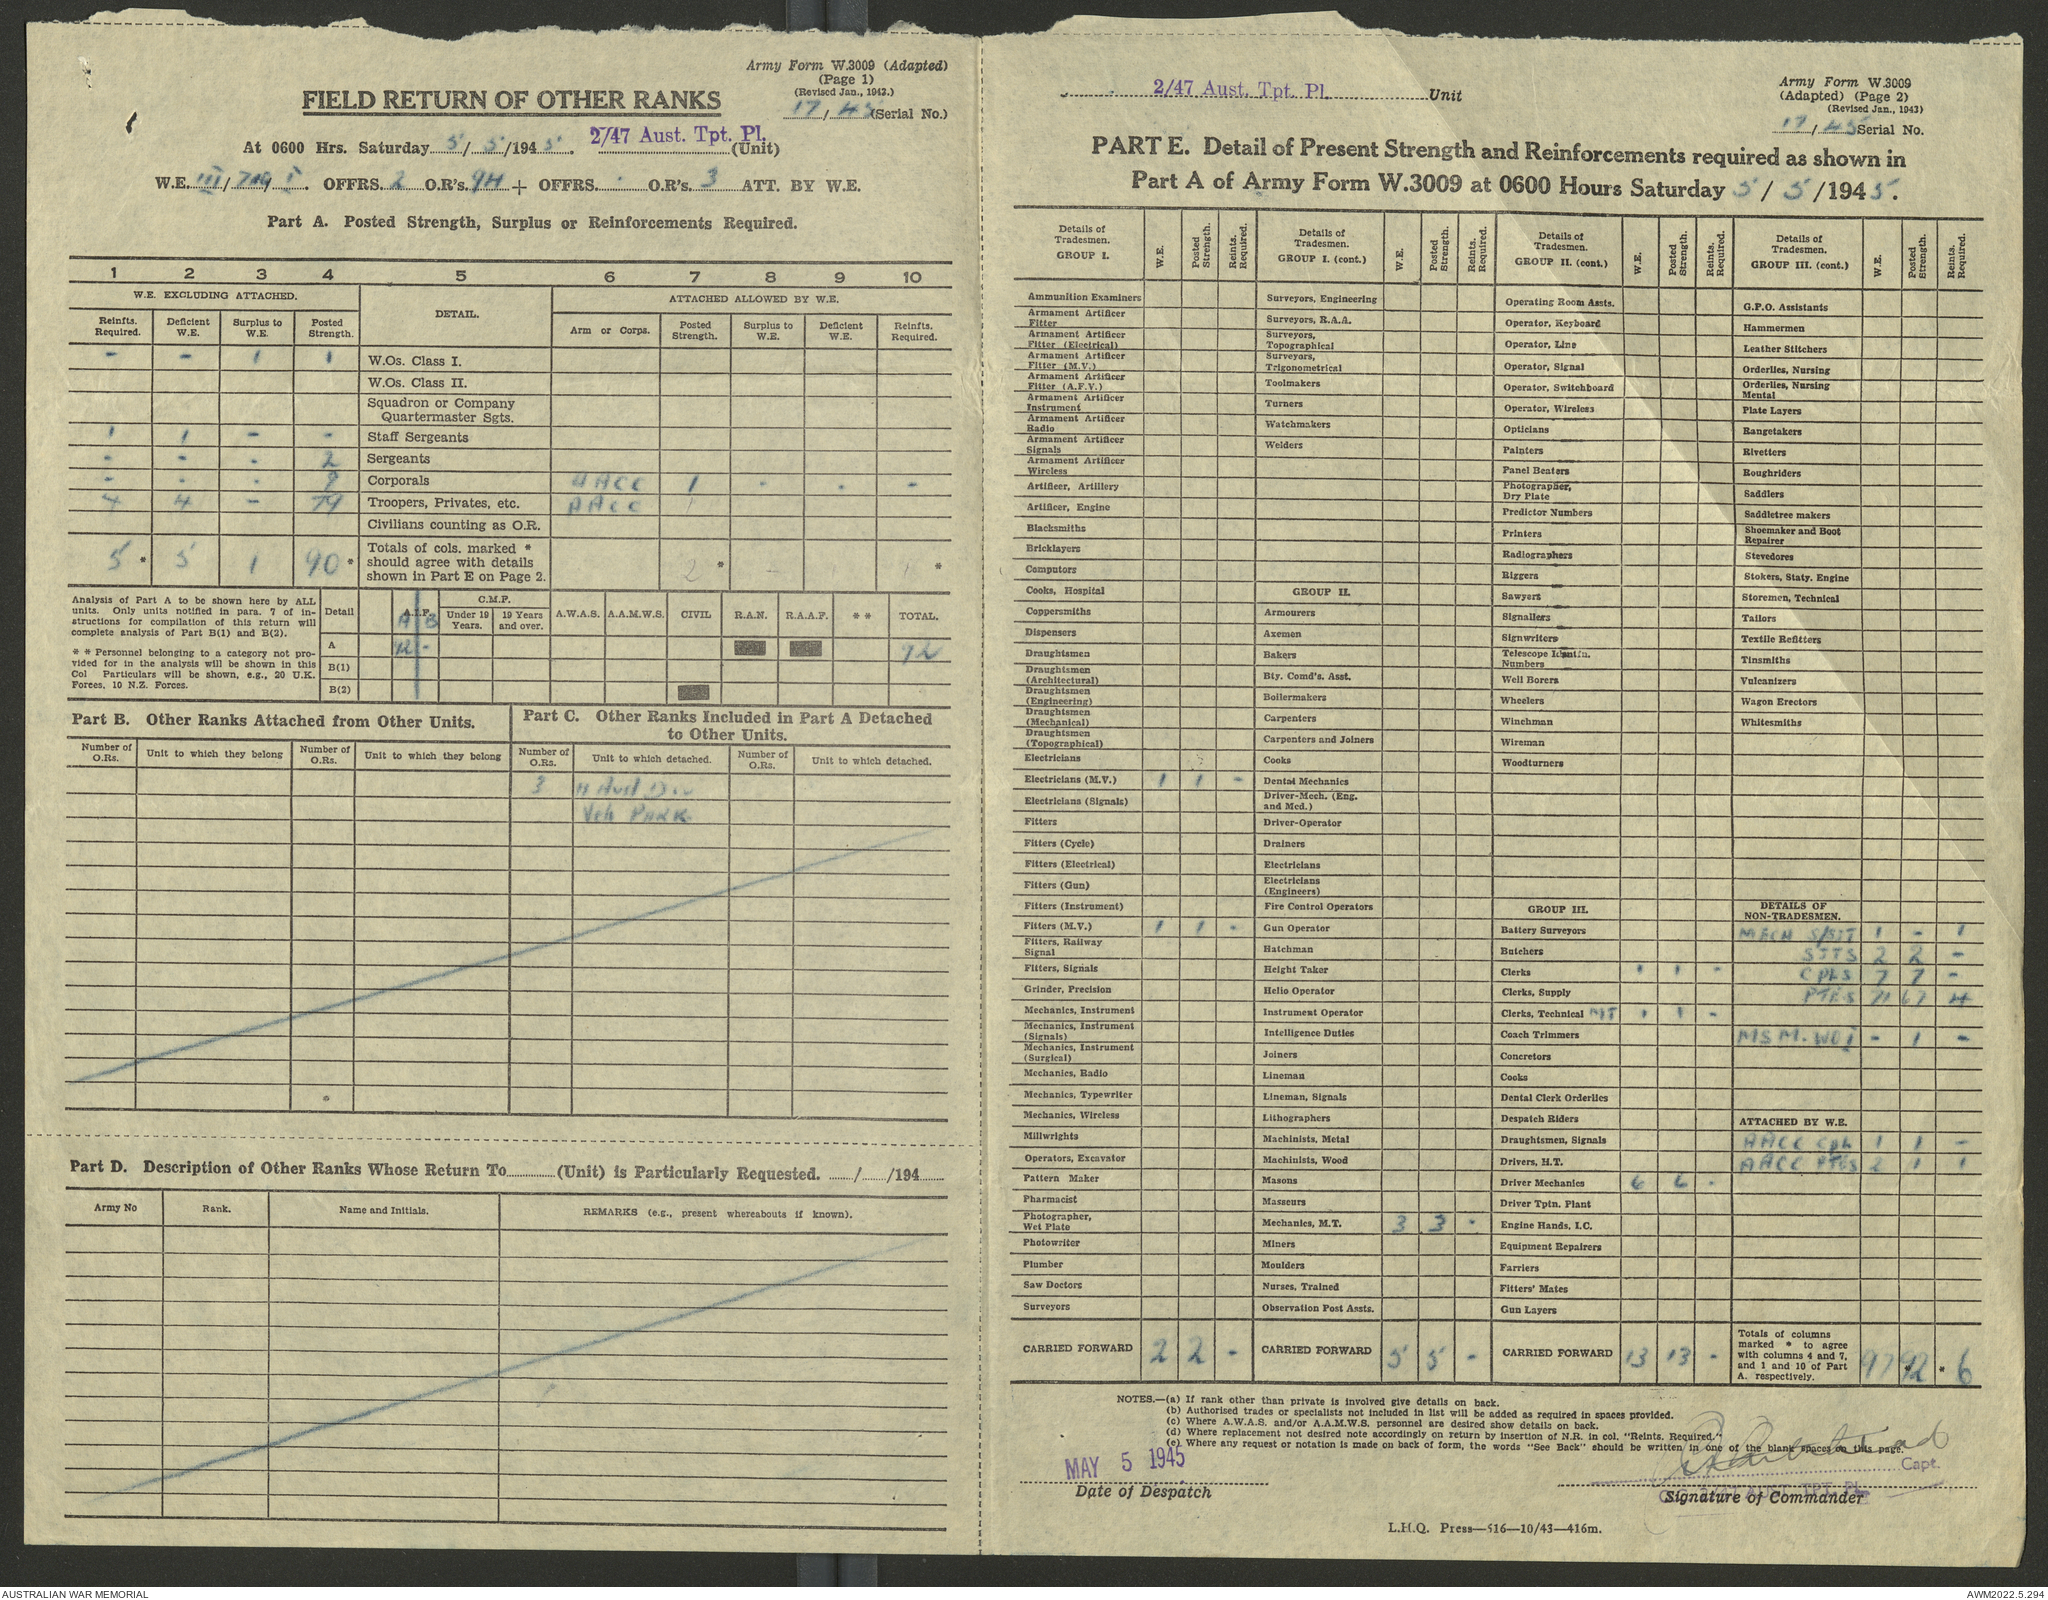 Army Form W.3009 (Adapted)
(Page 1)
(Revised Jan., 1943.)
17/45 (Serial No.)
FIELD RETURN OF OTHER RANKS
At 0600 Hrs. Saturday 5/5/1945. 2/47 Aust. Tpt. Pl. (Unit)
W.E. III/ OFFRS. 2 O.R's. 94 + OFFRS. . O.R's. 3 ATT. BY W.E.
Part A. Posted Strength, Surplus or Reinforcements Required.
1 2 3 4 5 6 7 8 9 10
W.E. EXCLUDING ATTACHED. DETAIL. ATTACHED ALLOWED BY W.E.
Reinfts. Required. Deficient W.E. Surplus to W.E. Posted Strength. Arm or Corps. Posted Strength. Surplus to W.E. Deficient W.E. Reinfts. Required.
- - 1 1 W.Os. Class I.
W.Os. Class II.
Squadron or Company
Quartermaster Sgts.
1 1 - - Staff Sergeants
- - - 2 Sergeants
- - - Corporals AACC 1 - - -
4 4 - 79 Troopers, Privates, etc. AACC 1
Civilians counting as O.R.
5 * 5 1 90 * Totals of cols. marked * should agree with details shown in Part E on Page 2. 2 * *
Analysis of Part A to be shown here by ALL units. Only units notified in para. 7 of instructions for compilation of this return will complete analysis of Part B(1) and B(2).
* * Personnel belonging to a category not provided for in the analysis will be shown in this Col Particulars will be shown, e.g., 20 U.K. Forces, 10 N.Z. Forces.
Detail A.I.F. A B C.M.F. Under 19 Years. 19 Years and over. A.W.A.S. A.A.M.W.S. CIVIL R.A.N. R.A.A.F. * * TOTAL.
A 92 - 92
B(1)
B(2)
Part B. Other Ranks Attached from Other Units.
Part C. Other Ranks Included in Part A Detached
to Other Units.
Number of O.Rs. Unit to which they belong Number of O.Rs. Unit to which they belong Number of O.Rs. Unit to which detached. Number of O.Rs. Unit to which detached.
3 11 Aust Div
Veh PARK
Part D. Description of Other Ranks Whose Return To (Unit) is Particularly Requested. / /194
Army No Rank. Name and Initials. REMARKS (e.g., present whereabouts if known).
2/47 Aust. Tpt. Pl. Unit
Army Form W.3009
(Adapted) (Page 2)
(Revised Jan., 1943)
17/45 Serial No.
PART E. Detail of Present Strength and Reinforcements required as shown in
Part A of Army Form W.3009 at 0600 Hours Saturday 5/5/1945.
Details of Tradesmen. GROUP I. W.E. Posted Strength. Reints. Required.
Ammunition Examiners
Armament Artificer Fitter
Armament Artificer Fitter (Electrical)
Armament Artificer Fitter (M.V.)
Armament Artificer Fitter (A.F.V.)
Armament Artificer Instrument
Armament Artificer Radio
Armament Artificer Signals
Armament Artificer Wireless
Artificer, Artillery
Artificer, Engine
Blacksmiths
Bricklayers
Computors
Cooks, Hospital
Coppersmiths
Dispensers
Draughtsmen
Draughtsmen (Architectural)
Draughtsmen (Engineering)
Draughtsmen (Mechanical)
Draughtsmen (Topographical)
Electricians
Electricians (M.V.) 1 1 -
Electricians (Signals)
Fitters
Fitters (Cycle)
Fitters (Electrical)
Fitters (Gun)
Fitters (Instrument)
Fitters (M.V.) 1 1 -
Fitters, Railway Signal
Fitters, Signals
Grinder, Precision
Mechanics, Instrument
Mechanics, Instrument (Signals)
Mechanics, Instrument (Surgical)
Mechanics, Radio
Mechanics, Typewriter
Mechanics, Wireless
Millwrights
Operators, Excavator
Pattern Maker
Pharmacist
Photographer, Wet Plate
Photowriter
Plumber
Saw Doctors
Surveyors
CARRIED FORWARD 2 2 -
Details of Tradesmen. GROUP I. (cont.) W.E. Posted Strength. Reints. Required.
Surveyors, Engineering
Surveyors, R.A.A.
Surveyors, Topographical
Surveyors, Trigonometrical
Toolmakers
Turners
Watchmakers
Welders
GROUP II.
Armourers
Axemen
Bakers
Bty. Comd's. Asst.
Boilermakers
Carpenters
Carpenters and Joiners
Cooks
Dental Mechanics
Driver-Mech. (Eng. and Med.)
Driver-Operator
Drainers
Electricians
Electricians (Engineers)
Fire Control Operators
Gun Operator
Hatchman
Height Taker
Helio Operator
Instrument Operator
Intelligence Duties
Joiners
Lineman
Lineman, Signals
Lithographers
Machinists, Metal
Machinists, Wood
Masons
Masseurs
Mechanics, M.T. 3 3 -
Miners
Moulders
Nurses, Trained
Observation Post Assts.
CARRIED FORWARD 5 5 -
Details of Tradesmen. GROUP II. (cont) W.E. Posted Strength. Reints. Required.
Operating Room Assts.
Operator, Keyboard
Operator, Line
Operator, Signal
Operator, Switchboard
Operator, Wireless
Opticians
Painters
Panel Beaters
Photographer, Dry Plate
Predictor Numbers
Printers
Radiographers
Riggers
Sawyers
Signallers
Signwriters
Telescope Identfn. Numbers
Well Borers
Wheelers
Winchman
Wireman
Woodturners
GROUP III.
Battery Surveyors
Butchers
Clerks 1 1 -
Clerks, Supply
Clerks, Technical MT 1 1 -
Coach Trimmers
Concretors
Cooks
Dental Clerk Orderlies
Despatch Riders
Draughtsmen, Signals
Drivers, H.T.
Driver Mechanics 6 6 -
Driver Tptn. Plant
Engine Hands, I.C.
Equipment Repairers
Farriers
Fitters' Mates
Gun Layers
CARRIED FORWARD 13 13 -
Details of Tradesmen. GROUP III. (cont.) W.E. Posted Strength. Reints. Required.
G.P.O. Assistants
Hammermen
Leather Stitchers
Orderlies, Nursing
Orderlies, Nursing Mental
Plate Layers
Rangetakers
Rivetters
Roughriders
Saddlers
Saddletree makers
Shoemaker and Boot Repairer
Stevedores
Stokers, Staty. Engine
Storemen, Technical
Tailors
Textile Refitters
Tinsmiths
Vulcanizers
Wagon Erectors
Whitesmiths
DETAILS OF NON-TRADESMEN.
MECH S/SJT 1 - 1
SJTS 2 2 -
CPLS 7 7 -
PTES 71 67 4
MSM. WO1 - 1 -
ATTACHED BY W.E.
AACC CPL 1 1 -
AACC PTES 2 1 1
Totals of columns marked * to agree with columns 4 and 7, and 1 and 10 of Part A. respectively. 97 92 * 6 *
NOTES.—(a) If rank other than private is involved give details on back.
(b) Authorised trades or specialists not included in list will be added as required in spaces provided.
(c) Where A.W.A.S. and/or A.A.M.W.S. personnel are desired show details on back.
(d) Where replacement not desired note accordingly on return by insertion of N.R. in col. "Reints. Required."
(e) Where any request or notation is made on back of form, the words "See Back" should be written in one of the blank spaces on this page.
MAY 5 1945
Date of Despatch
Capt.
2/47 AUST. TPT. Pl.
Signature of Commander
L.H.Q. Press—516—10/43—416m.
AUSTRALIAN WAR MEMORIAL
AWM2022.5.294